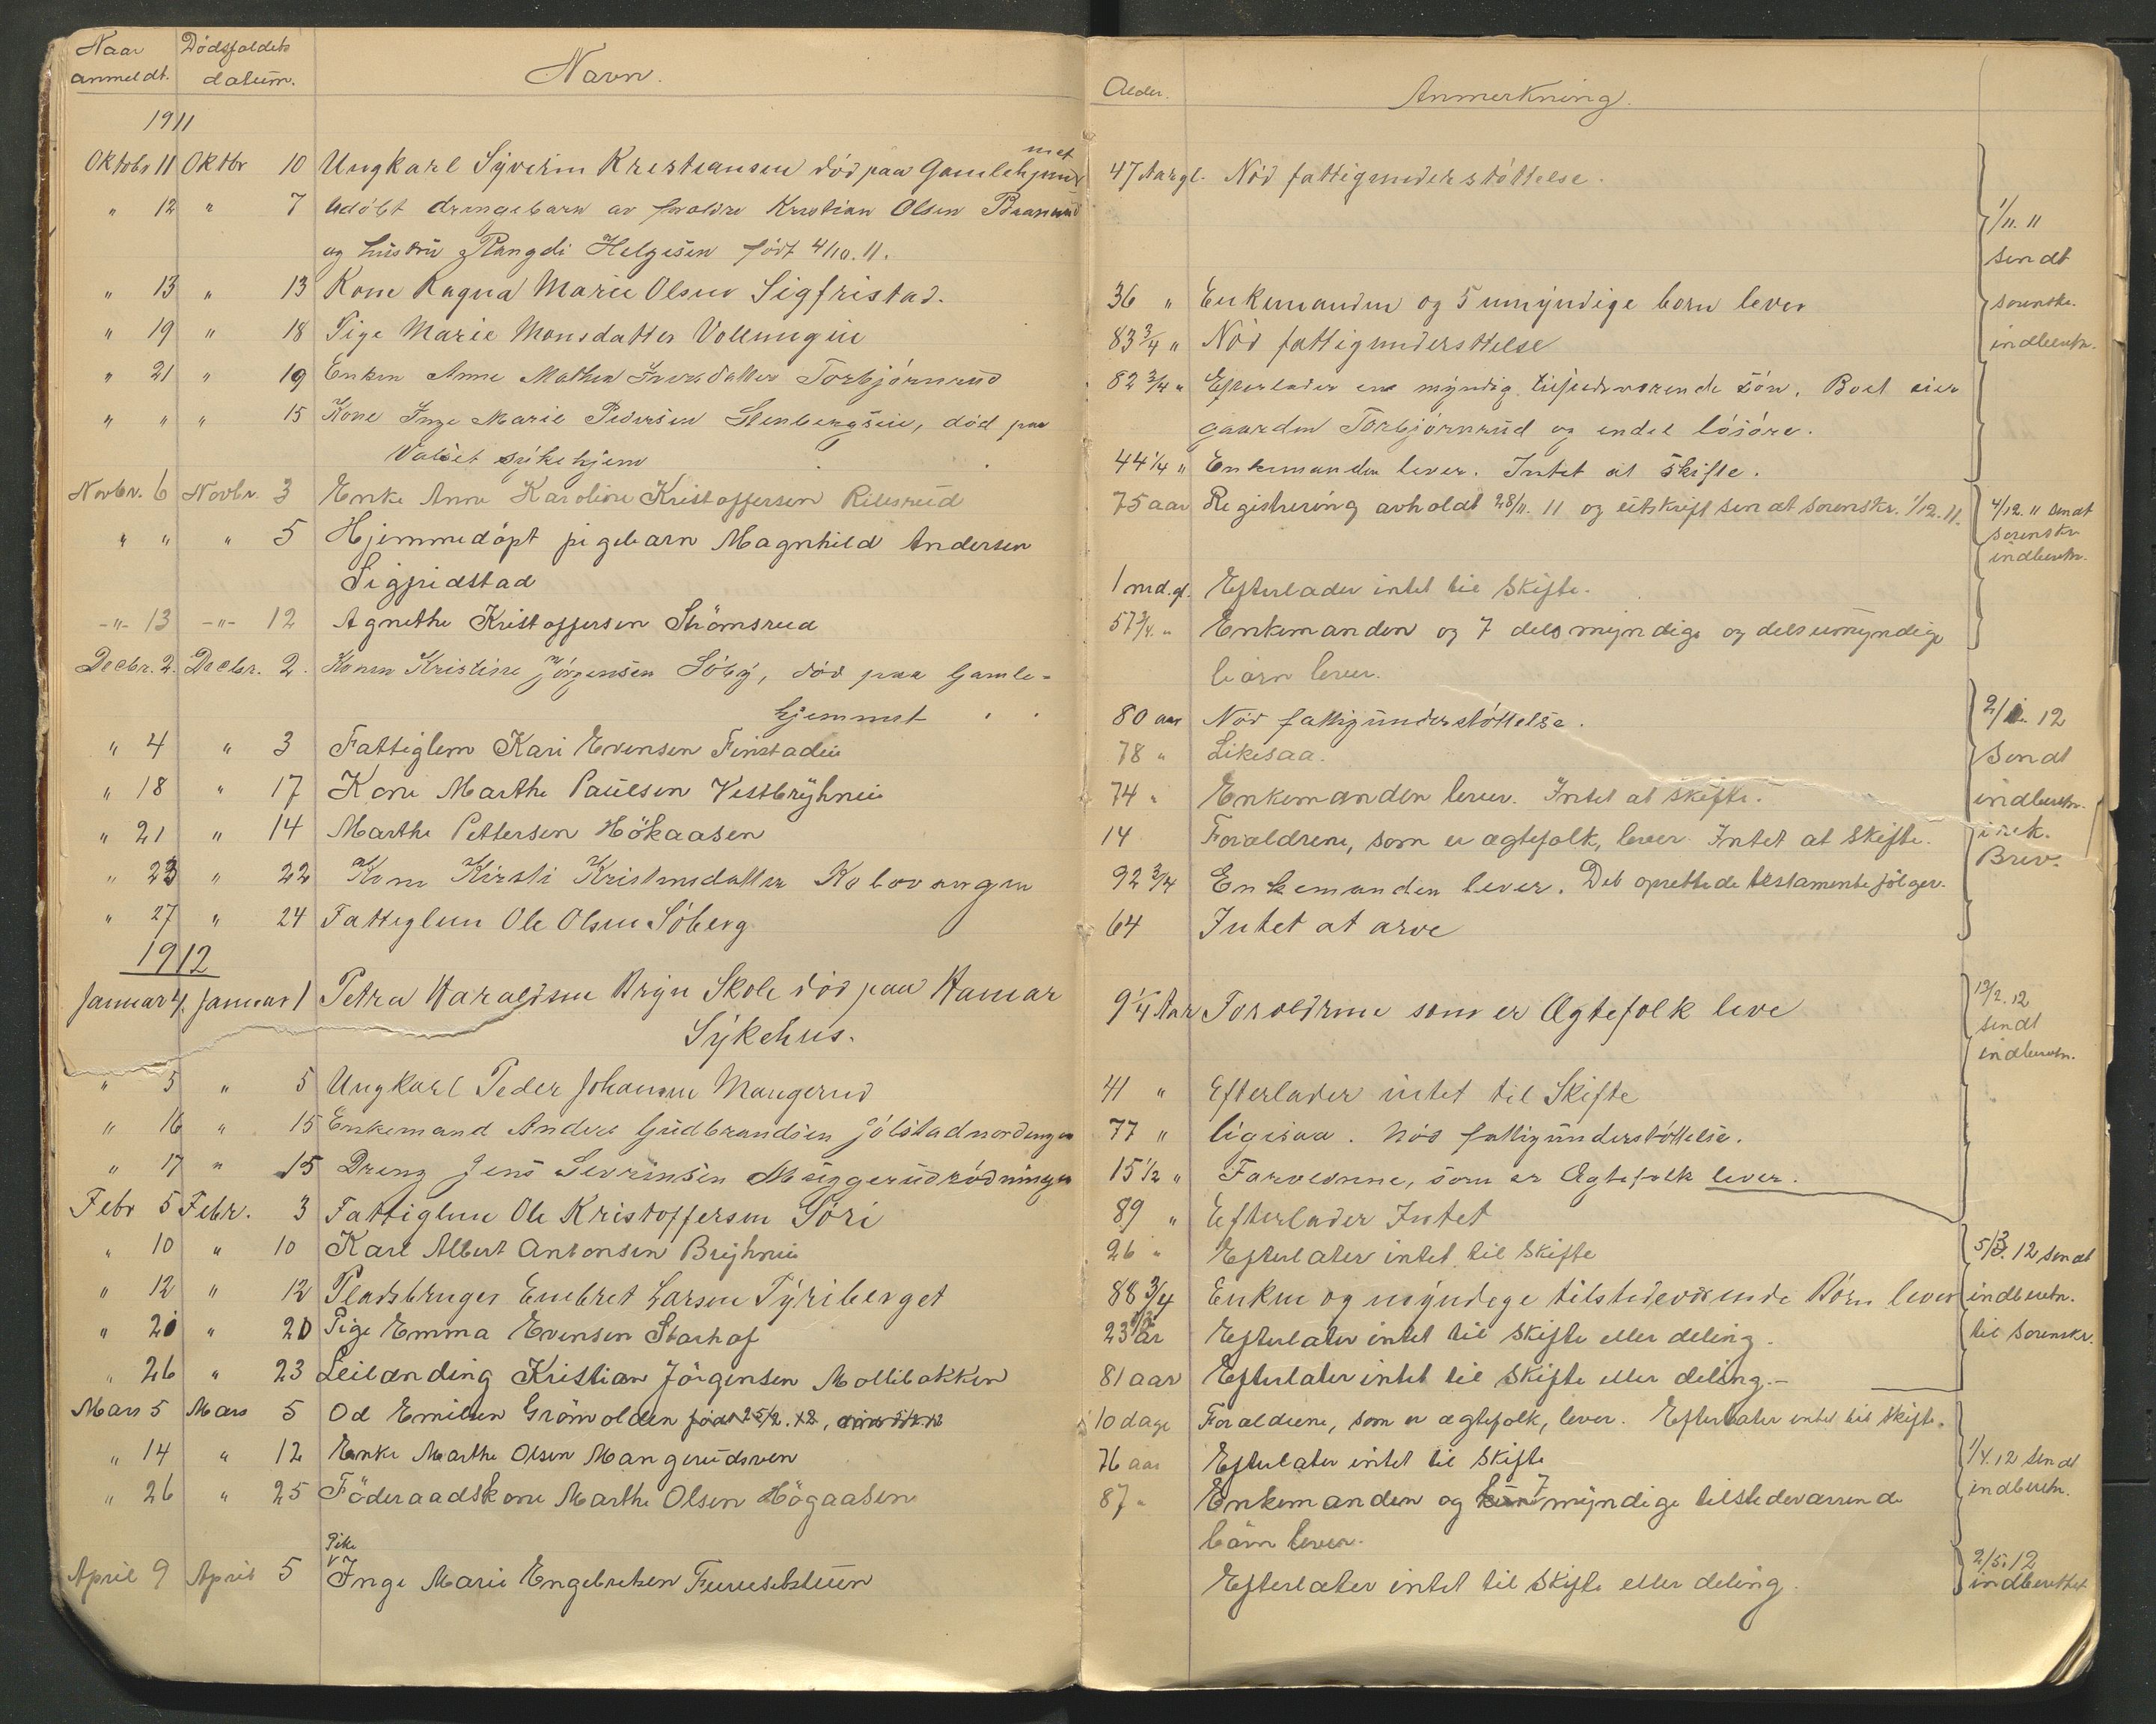 Naar anmeldt. Dödsfaldets datum. Navn. Alder. Anmerkning.
1911
Oktobr 11 Oktbr 10 Ungkarl Syverin Kristiansen död paa Gamlehjem met 47 Aar gl. Nöd fattigunderstöttelse.
" 12 " 7 Udöbt drengebarn av foreldre Kristian Olsen
og hustru Rangdi Helgesen født 4/10.11.
" 13 " 13 Kone Ragna Marie Olsen Sigfristad. 36 " Enkemanden og 5 umyndige born lever
" 19 " 18 Pige Marie Monsdatter Vollengen 83 3/4 " Nöd fattigundersttelse
" 21 " 19 Enken Anne Mathea Iversdatter Torbjörnrud 82 3/4 " Efterlader en myndig tilstedværende sön. Boet eier
gaarden Torbjörnrud og endel lösöre.
" " " 15 Kone Inge Marie Pedersen Stenbergseie, död paa
Valset sykehjem 44 1/4 " Enkemanden lever. Intet at skifte.
Novbr. 6 Novbr. 3 Enke Anne Karoline Kristoffersen 75 aar Registrering avholdt 28/11. 11 og utskrift sendt sorenskr. 1/12.11.
" " " 5 Hjemmedöpt pigebarn Magnhild Andersen
Sigfridstad 1 md. gl. Efterlader intet til skifte.
-"- 13 -"- 12 Agnethe Kristoffersen Strömsrud 57 3/4 " Enkemanden og 7 dels myndige og dels umyndige
börn lever.
Decbr. 2. Decbr. 2. Konen Kristine Jörgensen Söby, död paa Gamle-
hjemmet 80 aar Nöd fattigunderstöttelse.
" 4 " 3 Fattiglem Kari Evensen Finstadeie 78 " Likesaa.
" 18 " 17 Kone Marthe Paulsen Vestbryhneie 74 " Enkemanden lever. Intet at skifte.
" 21 " 14 Marthe Pettersen Hökaasen 14 Foreldrene, som er ægtefolk, lever. Intet at skifte.
" 23 " 22 Kone Kirsti Kristensdatter 92 3/4 Enkemanden lever. Det oprettede testamente fölger.
" 27 " 24 Fattiglem Ole Olsen Söberg 64 Intet at arve
1912
Januar 4. Januar 1 Petra Haraldsen Bryn Skole död paa Hamar
Sykehus. 9 1/4 Aar Foreldrene som er Ægtefolk leve
" 5 " 5 Ungkarl Peder Johansen Mangerud 41 " Efterlader intet til Skifte
" 16 " 15 Enkemand Anders Gudbrandsen Jölstadnordengen 77 " ligesaa. Nöd fattigunderstöttelse.
" 17 " 15 Dreng Jens Sevrinsen Muggerudrödningen 15 1/2 " Foreldrene, som er Ægtefolk lever.
Febr 5 Febr. 3 Fattiglem Ole Kristoffersen Söri 89 " Efterlader Intet
" 10 " 10 Karl Albert Antonsen Bryhneie 26 " Efterlater intet til skifte
" 12 " 12 Pladsbruger Embret Larsen Tyriberget 88 3/4 Enken og myndege tilstedeværende Börn lever
" 20 " 20 Pige Emma Evensen Starhof 23 år Efterlater intet til skifte eller deling.
" 26 " 23 Leilending Kristian Jörgensen Mollibakken 81 aar Efterlater intet til skifte eller deling.-
Mars 5 Mars 5 Od Emilsen Grömvolden född 25/2.12, 10 dage Foreldrene, som er ægtefolk, lever. Efterlater intet til skifte.
" 14 " 12 Enke Marthe Olsen Mangerudsven 76 aar Efterlater intet til skifte
" 26 " 25 Föderaadskone Marthe Olsen Högaasen 87 " Enkemanden og 7 myndige tilstedeværende
börn lever.
April 9 April 5 Pike Inge Marie Engebretsen Efterlater intet til skifte eller deling.
1/11. 11
sendt
sorenskr.
indberetn.
4/12. 11 sendt
sorenskr.
indberetn.
2/1. 12
Sendt
indberetn.
i rek.
Brev.
12/2. 12
sendt
indberetn.
5/3. 12 sendt
indberetn.
til sorenskr.
1/4. 12 sendt
indberetn.
2/5. 12
indberettet